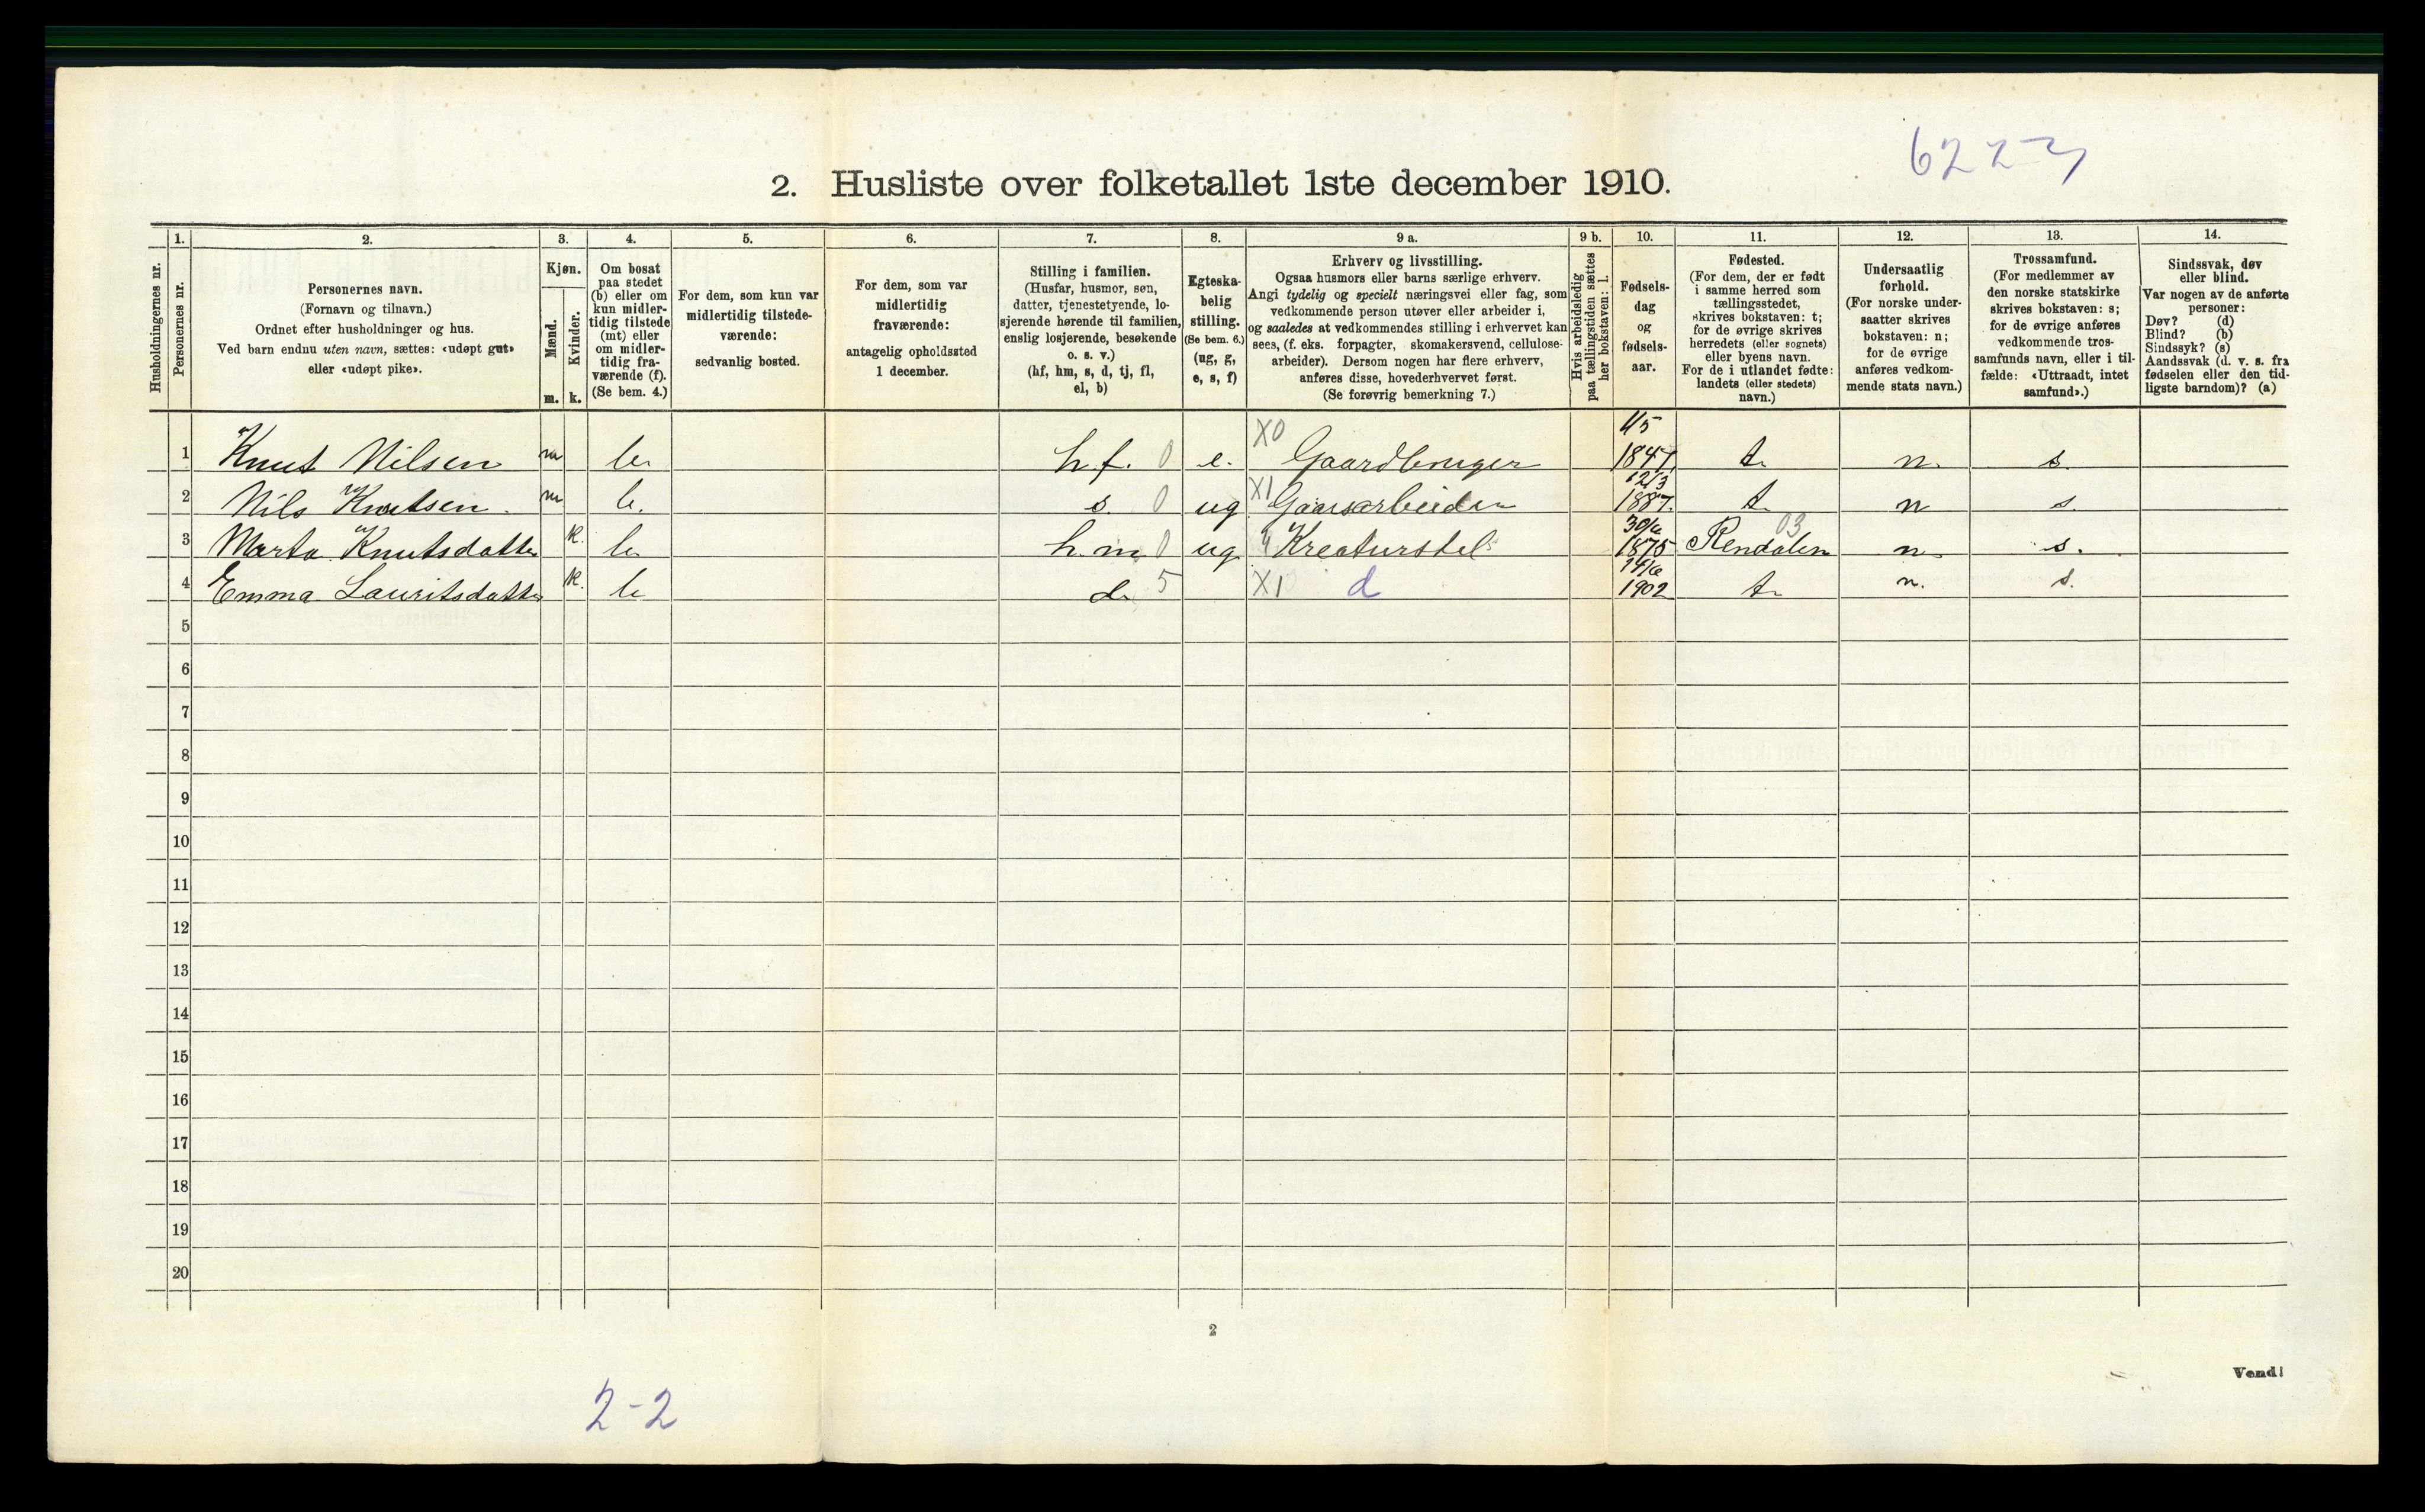 6223
2. Husliste over folketallet 1ste december 1910.
Husholdningernes nr.
1. Personernes nr.
2. Personernes navn.
(Fornavn og tilnavn.)
Ordnet efter husholdninger og hus.
Ved barn endnu uten navn, sættes: «udøpt gut»
eller «udøpt pike».
3. Kjøn.
Mænd. m.
Kvinder. k.
4. Om bosat
paa stedet
(b) eller om
kun midler-
tidig tilstede
(mt) eller
om midler-
tidig fra-
værende (f).
(Se bem. 4.)
5. For dem, som kun var
midlertidig tilstede-
værende:
sedvanlig bosted.
6. For dem, som var
midlertidig
fraværende:
antagelig opholdssted
1 december.
7. Stilling i familien.
(Husfar, husmor, søn,
datter, tjenestetyende, lo-
sjerende hørende til familien,
enslig losjerende, besøkende
o. s. v.)
(hf, hm, s, d, tj, fl,
el, b)
8. Egteska-
belig
stilling.
(Se bem. 6.)
(ug, g,
e, s, f)
9 a. Erhverv og livsstilling.
Ogsaa husmors eller barns særlige erhverv.
Angi tydelig og specielt næringsvei eller fag, som
vedkommende person utøver eller arbeider i,
og saaledes at vedkommendes stilling i erhvervet kan
sees, (f. eks. forpagter, skomakersvend, cellulose-
arbeider). Dersom nogen har flere erhverv,
anføres disse, hovederhvervet først.
(Se forøvrig bemerkning 7.)
9 b. Hvis arbeidsledig
paa tællingstiden sættes
her bokstaven: l.
10. Fødsels-
dag
og
fødsels-
aar.
11. Fødested.
(For dem, der er født
i samme herred som
tællingsstedet,
skrives bokstaven: t;
for de øvrige skrives
herredets (eller sognets)
eller byens navn.
For de i utlandet fødte:
landets (eller stedets)
navn.)
12. Undersaatlig
forhold.
(For norske under-
saatter skrives
bokstaven: n;
for de øvrige
anføres vedkom-
mende stats navn.)
13. Trossamfund.
(For medlemmer av
den norske statskirke
skrives bokstaven: s;
for de øvrige anføres
vedkommende tros-
samfunds navn, eller i til-
fælde: «Uttraadt, intet
samfund».)
14. Sindssvak, døv
eller blind.
Var nogen av de anførte
personer:
Døv? (d)
Blind? (b)
Sindssyk? (s)
Aandssvak (d. v. s. fra
fødselen eller den tid-
ligste barndom)? (a)
1 Knut Nilsen m b. h.f. 0 e. X0 Gaardbruger 4/5 1847. t. n. s.
2 Nils Knutsen. m b. s. 0 ug X1 Gaarsarbeider 12/3 1887. t. n s.
3 Marta Knutsdatter k. b h.m 0 ug 4 Kreaturstel 30/6 1875 Rendalen 03 n. s.
4 Emma Lauritsdatter k. b d. 5 X1 d 14/6 1902 t. n. s.
5
6
7
8
9
10
11
12
13
14
15
16
17
18
19
20
2
Vend!
2-2